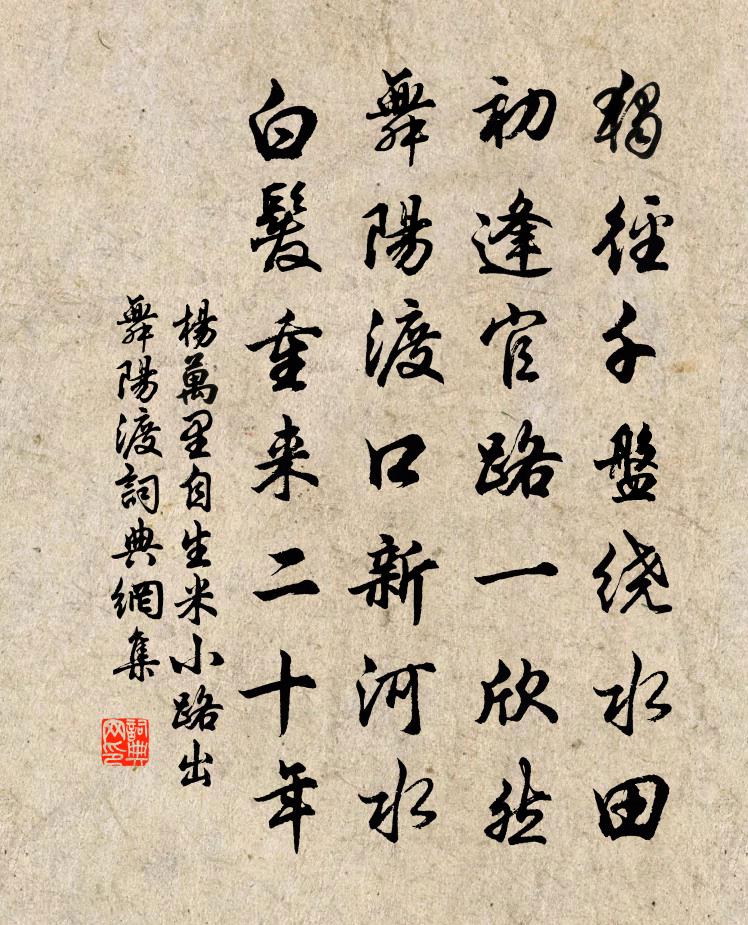 独徑千盤绕水田
初逢官路一欣然
舞陽渡口新河水
白髮重来二十年
楊萬里自生米小路出
舞陽渡詞典網集
詞典网印